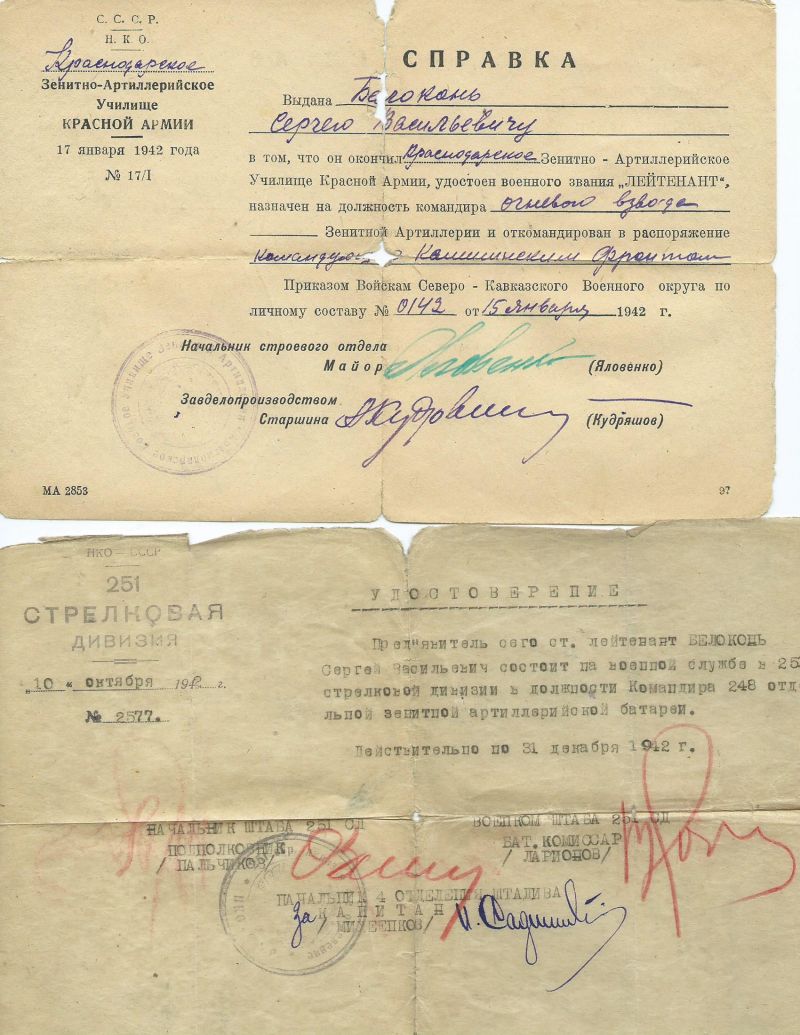 С. С. С. Р.
Н. К. О.
Краснодарское
Зенитно-Артиллерийское
Училище
КРАСНОЙ АРМИИ
17 января 1942 года
№ 17/I
СПРАВКА
Выдана Белоконь
Сергею Васильевичу
в том, что он окончил Краснодарское Зенитно - Артиллерийское
Училище Красной Армии, удостоен военного звания „ЛЕЙТЕНАНТ“,
назначен на должность командира огневого взвода
Зенитной Артиллерии и откомандирован в распоряжение
Калининским фронтом
Приказом Войскам Северо - Кавказского Военного округа по
личному составу № 0142 от 15 января 1942 г.
Начальник строевого отдела
Майор (Яловенко)
Завделопроизводством
Старшина (Кудряшов)
МА 2853
97
НКО — СССР
251
СТРЕЛКОВАЯ
ДИВИЗИЯ
„10“ октября 194 г.
№ 2577.
УДОСТОВЕРЕНИЕ
Пред"явитель сего ст. лейтенант БЕЛОКОНЬ
Сергей Васильевич состоит на военной службе в 25
стрелковой дивизии в должности Командира 248 отде
льной зенитной артиллерийской батареи.
Действительно по 31 декабря 1942 г.
НАЧАЛЬНИК ШТАБА 251 СД
ПОДПОЛКОВНИК
/ ПАЛЬЧИКОВ/
ВОЕНКОМ ШТАБА 251 СД
БАТ. КОМИССАР
/ ЛАРИОНОВ/
НАЧАЛЬНИК 4 ОТДЕЛЕНИЯ ШТАДИВА
За КАПИТАН
/ МИХЕЕНКОВ/